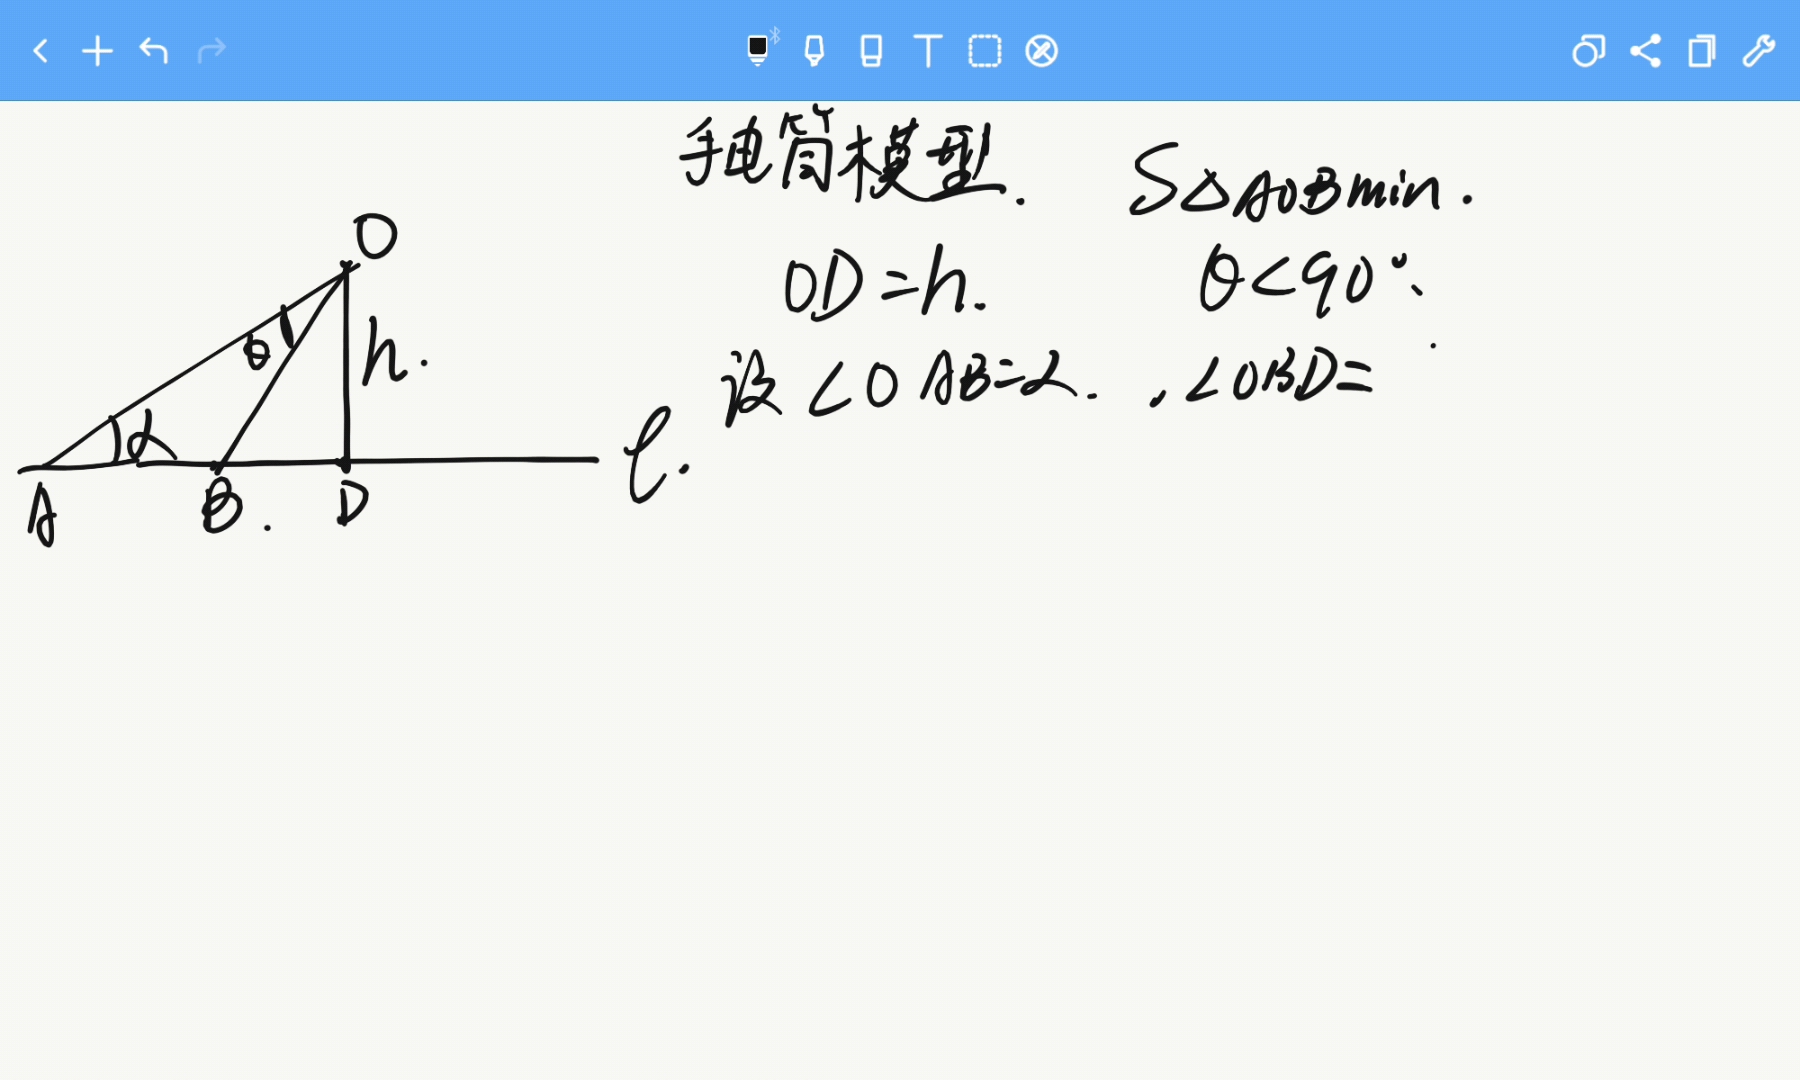 手电筒模型.
S△AOBmin.
OD=h.
θ<90°.
设∠OAB=α.,∠OBD=
O
θ
h.
α
l.
A
B.
D